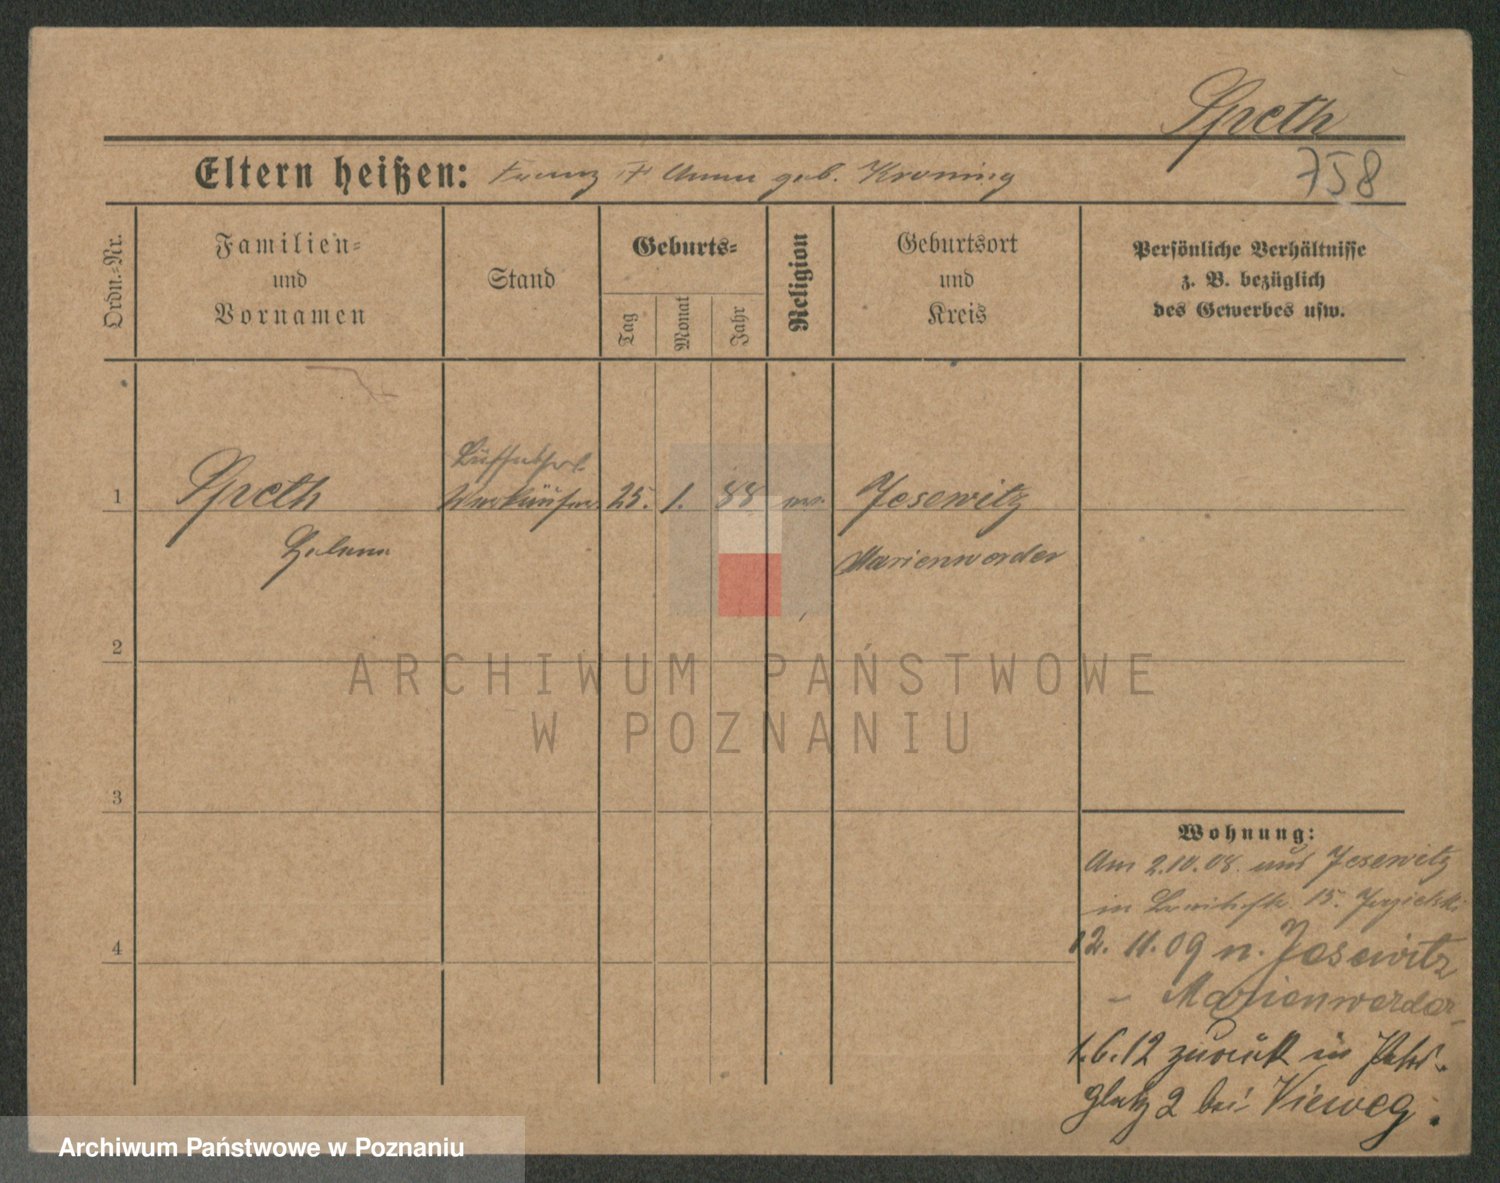 Speth
Eltern heißen: Franz † Anna geb. Kroning
758
Ordn.-Nr.
Familien-
und
Vornamen
Stand
Geburts-
Tag
Monat
Jahr
Religion
Geburtsort
und
Kreis
Persönliche Verhältnisse
z. B. bezüglich
des Gewerbes usw.
1
Speth
Helene
Büffetfrl.
Verkäufer.
25.
1.
88
ev.
Jesewitz
Marienwerder
2
ARCHIWUM PAŃSTWOWE
W POZNANIU
3
Wohnung:
Am 2.10.08. aus Jesewitz
in 15.
4
12. 11. 09 n. Jesewitz
- Marienwerder -
1.6.12 zurück in Petri-
platz 2 bei Vieweg.
Archiwum Państwowe w Poznaniu